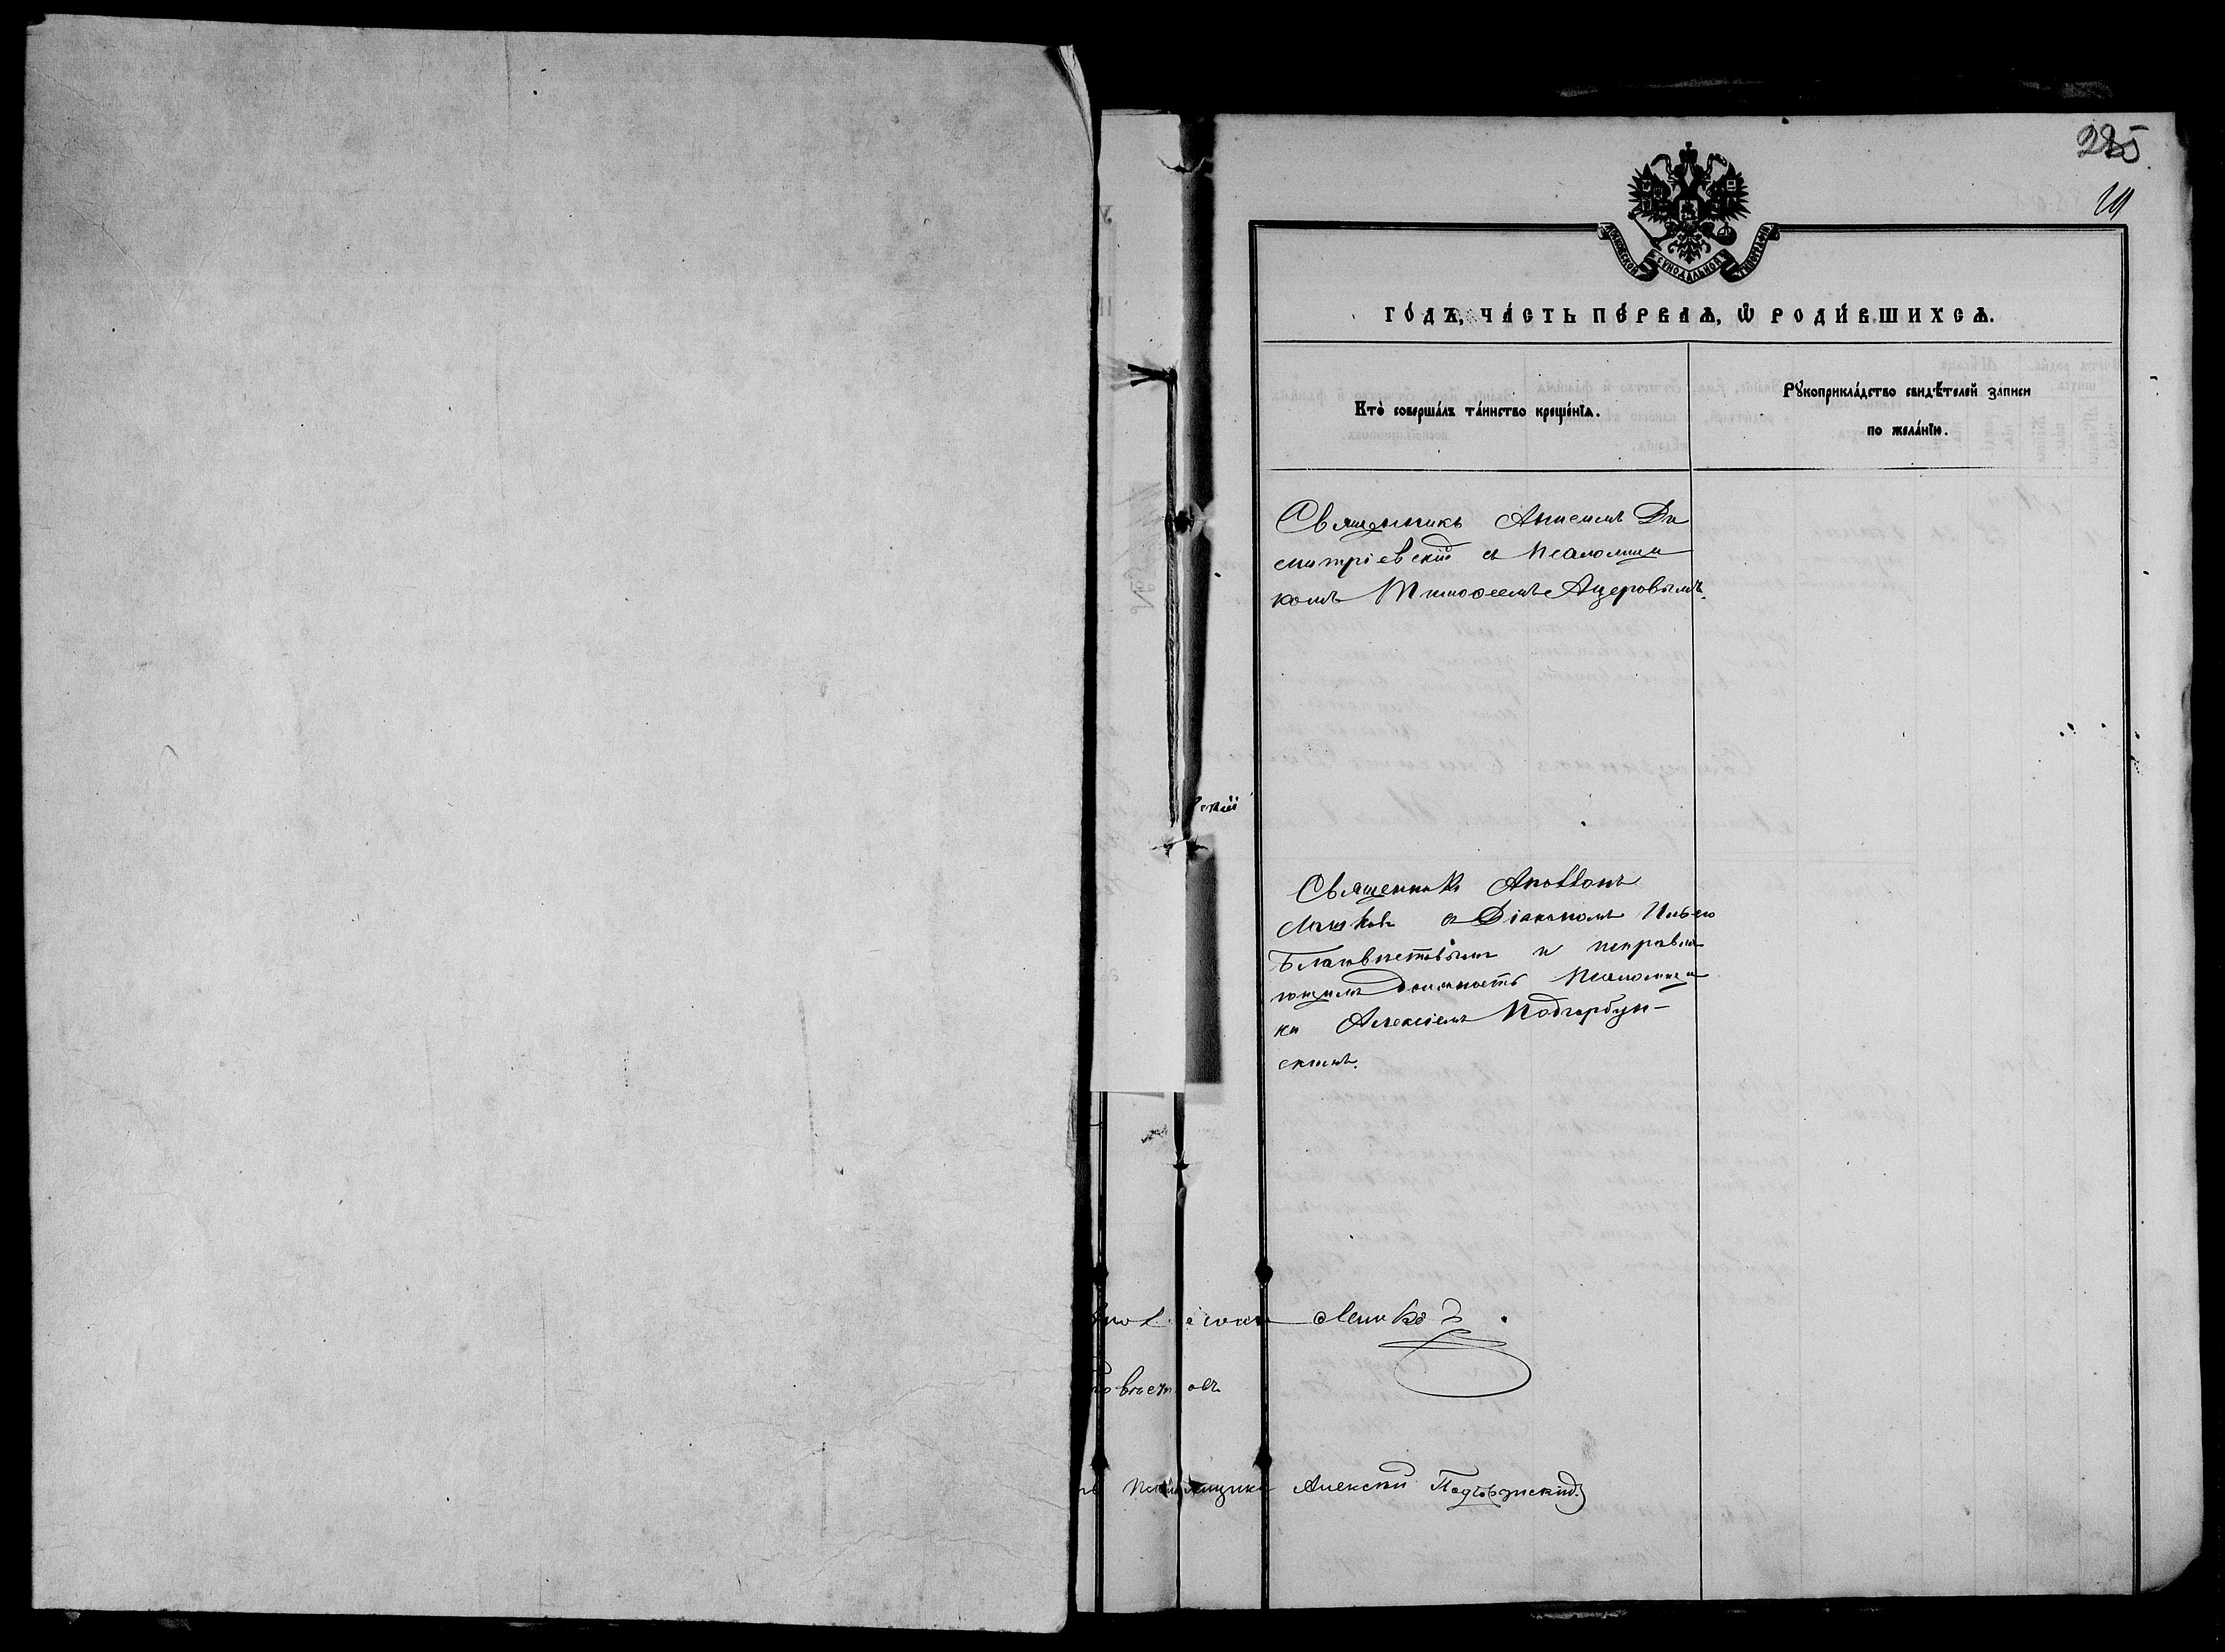 225
19
МОСКОВСКОЙ СѴНОДАЛЬНОЙ ТИПОГРАФІИ
ГО́ДЪ, ЧА́СТЬ ПЕ́РВАЯ, Ѡ҆ РОДИ́ВШИХСЯ.
Кто̀ соверша́лъ та́инство креще́нїѧ.
Рꙋкоприкла́дство свидѣ́телей за́писи
по жела́нїю.
Священникъ Анисимъ Ди
митріевскій съ Псаломщи
комъ Тимофеемъ Ацеровымъ.
скій
Священникъ Аполлонъ
Лешковъ съ Діакономъ Ильею
Благовѣстовымъ и исправля
ющимъ должность Псаломщи
ка Алексіемъ Подгорбун-
скимъ.
Лешковъ
вѣстовъ
Псаломщика Алексѣй Подгорбунскій